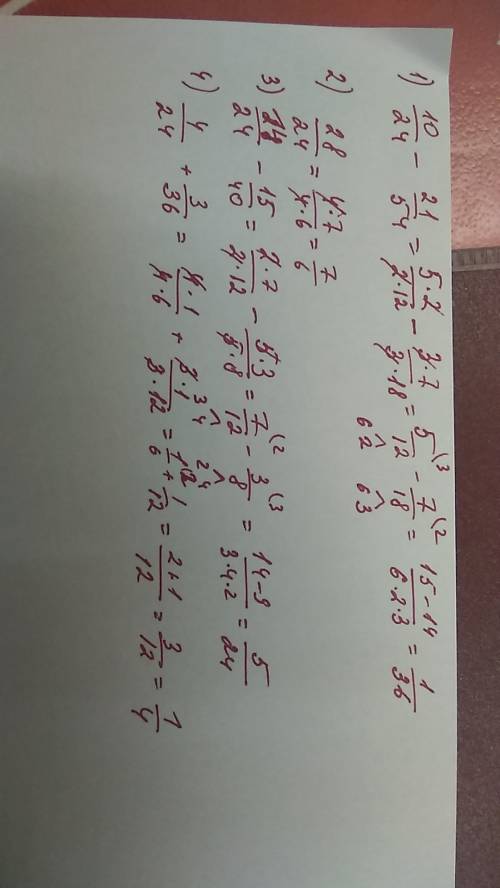 1) 10/24 − 21/54 = 5·2/2·12 − 3·7/3·18 = 5/12 (3 − 7/18 (2 = 15−14/6·2·3 = 1/36
6 2 6 3
2) 28/24 = 4·7/4·6 = 7/6
3) 14/24 − 15/40 = 2·7/2·12 − 5·3/5·8 = 7/12 (2 − 3/8 (3 = 14−9/3·4·2 = 5/24
3 4 2 4
4) 4/24 + 3/36 = 4·1/4·6 + 3·1/3·12 = 1/6 (2 + 1/12 = 2+1/12 = 3/12 = 1/4